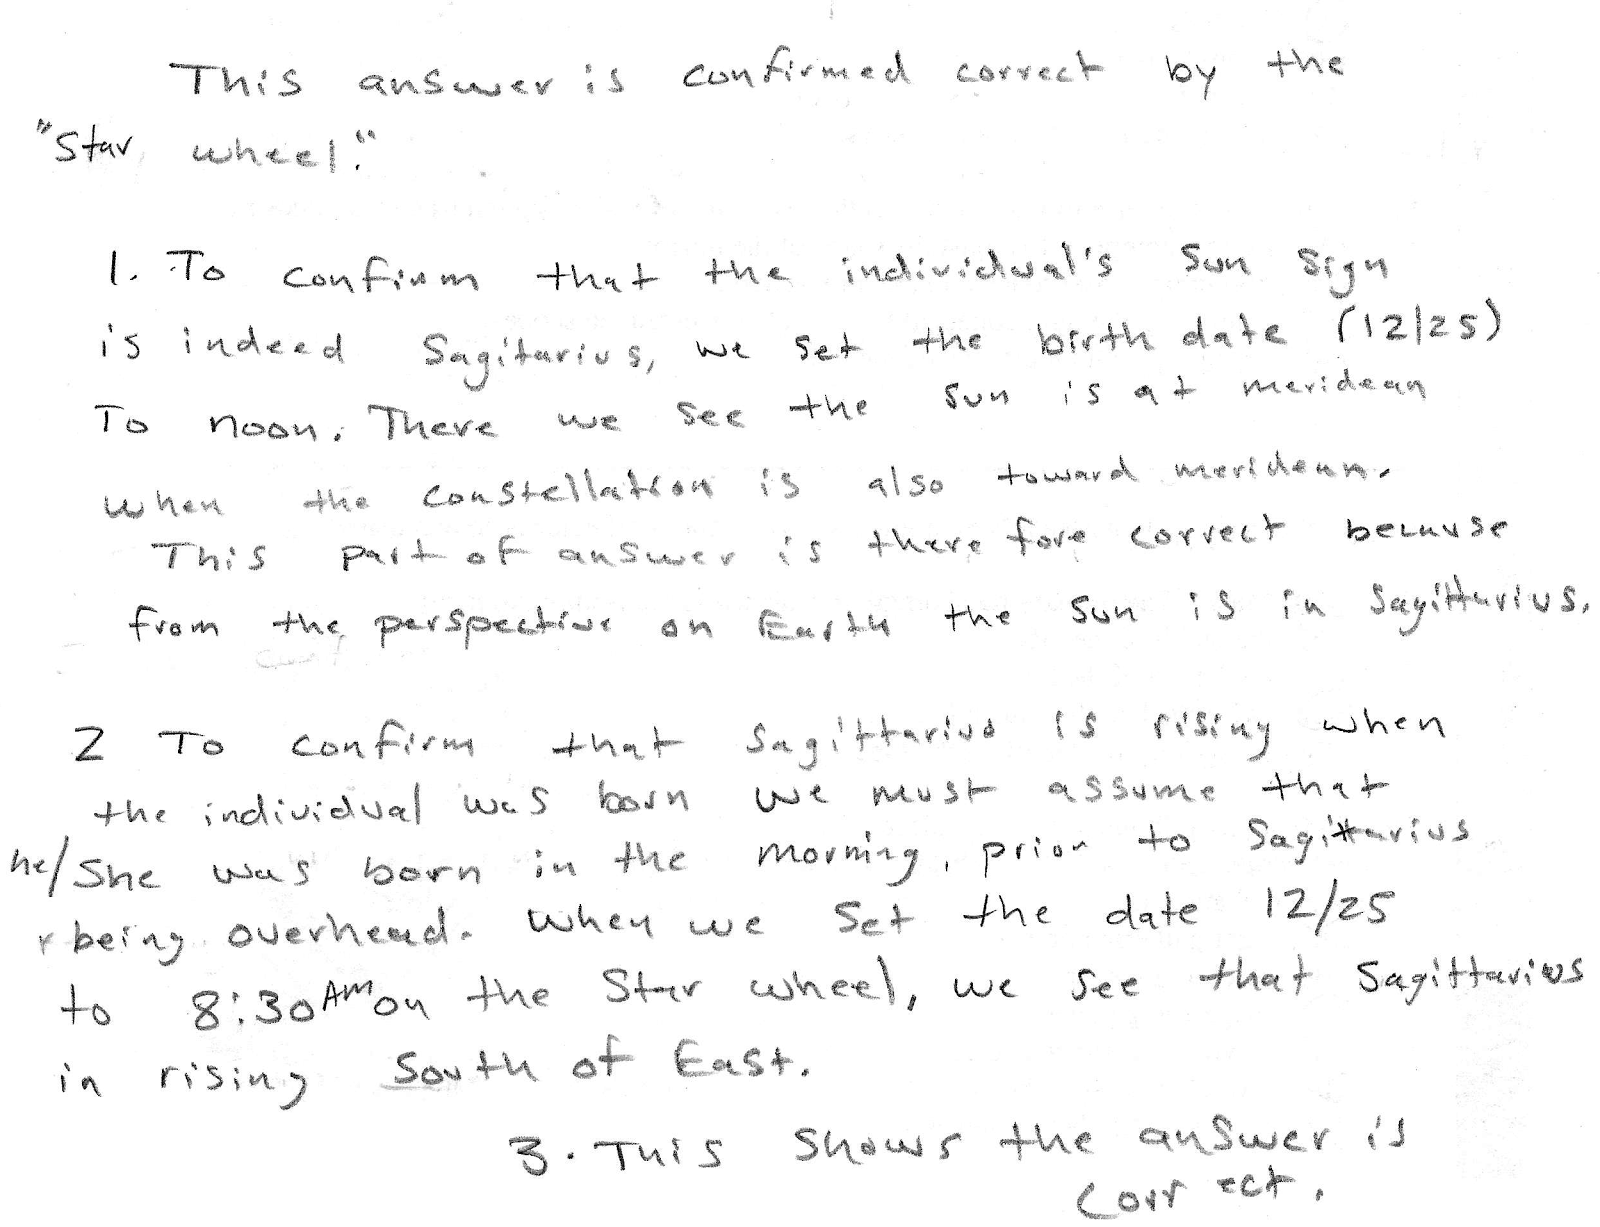 This answer is confirmed correct by the
"Star wheel."
1. To confirm that the individual's Sun Sign
is indeed Sagitarius, we set the birth date (12/25)
To noon. There we see the sun is at meridean
when the constellation is also toward meridean.
This part of answer is therefore correct because
from the perspective on Earth the sun is in Sagittarius.
2 To confirm that Sagittarius is rising when
the individual was born we must assume that
he/She was born in the morning, prior to Sagittarius
being overhead. When we Set the date 12/25
to 8:30 AM on the Star wheel, we see that Sagittarius
in rising South of East.
3. This shows the answer is
correct.